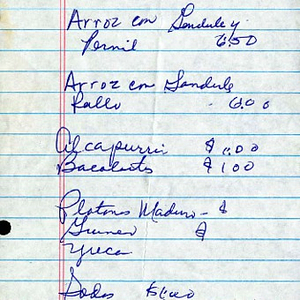 Arroz con Gandule y
Pernil 6.50
Arroz con Gandule
Pollo - 6.00
Alcapurria $1.00
Bacalaito $1.00
Platanos Maduro - $
Guineo $
Yuca
Sodas $1.00